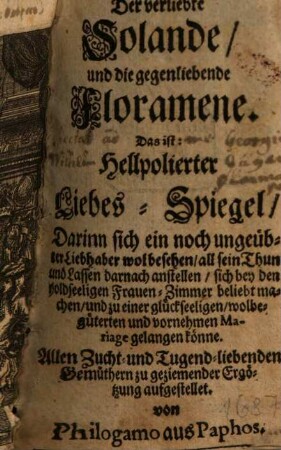 Der verliebte
Solande/
und die gegenliebende
Floramene.
Das ist:
Hellpolierter
Liebes-Spiegel/
Darinn sich ein noch ungeüb-
ter Liebhaber wol besehen/all sein Thun
und Lassen darnach anstellen/sich bey den
holdseeligen Frauen-Zimmer beliebt ma-
chen/und zu einer glückseeligen/wolbe-
güterten und vornehmen Ma-
riage gelangen könne.
Allen Zucht- und Tugend-liebenden
Gemüthern zu geziemender Ergö-
tzung aufgestellet.
von
1687
Philogamo aus Paphos.